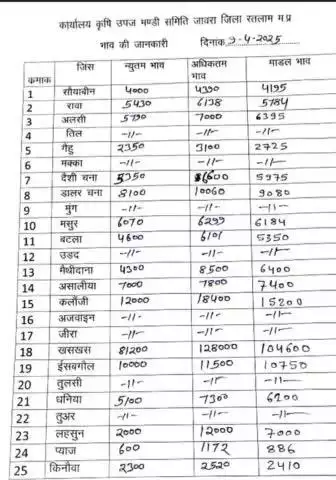 कार्यालय कृषि उपज मण्डी समिति जावरा जिला रतलाम म.प्र
भाव की जानकारी दिनांक 9-4-2025
कमाक जिंस न्युतम भाव अधिकतम भाव माडल भाव
1 सोयाबीन 4000 4390 4195
2 रावा 5430 6138 5784
3 अलसी 5790 7000 6395
4 तिल -11- -11- -11-
5 गेहु 2350 3100 2725
6 मक्का -11- -11- -11-
7 देशी चना 5350 6600 5975
8 डालर चना 8100 10060 9080
9 मुंग -11- -11- -11-
10 मसुर 6070 6299 6184
11 बटला 4600 6101 5350
12 उड़द -11- -11- -11-
13 मैथीदाना 4300 8500 6400
14 असालीया 7000 7800 7400
15 कलौंजी 12000 18400 15200
16 अजवाइन -11- -11- -11-
17 जीरा -11- -11- -11-
18 खसखस 81200 128000 104600
19 ईसबगोल 10000 11500 10750
20 तुलसी -11- -11- -11-
21 धनिया 5100 7300 6200
22 तुअर -11- -11- -11-
23 लहसुन 2000 12000 7000
24 प्याज 600 1172 886
25 किनौवा 2300 2520 2410